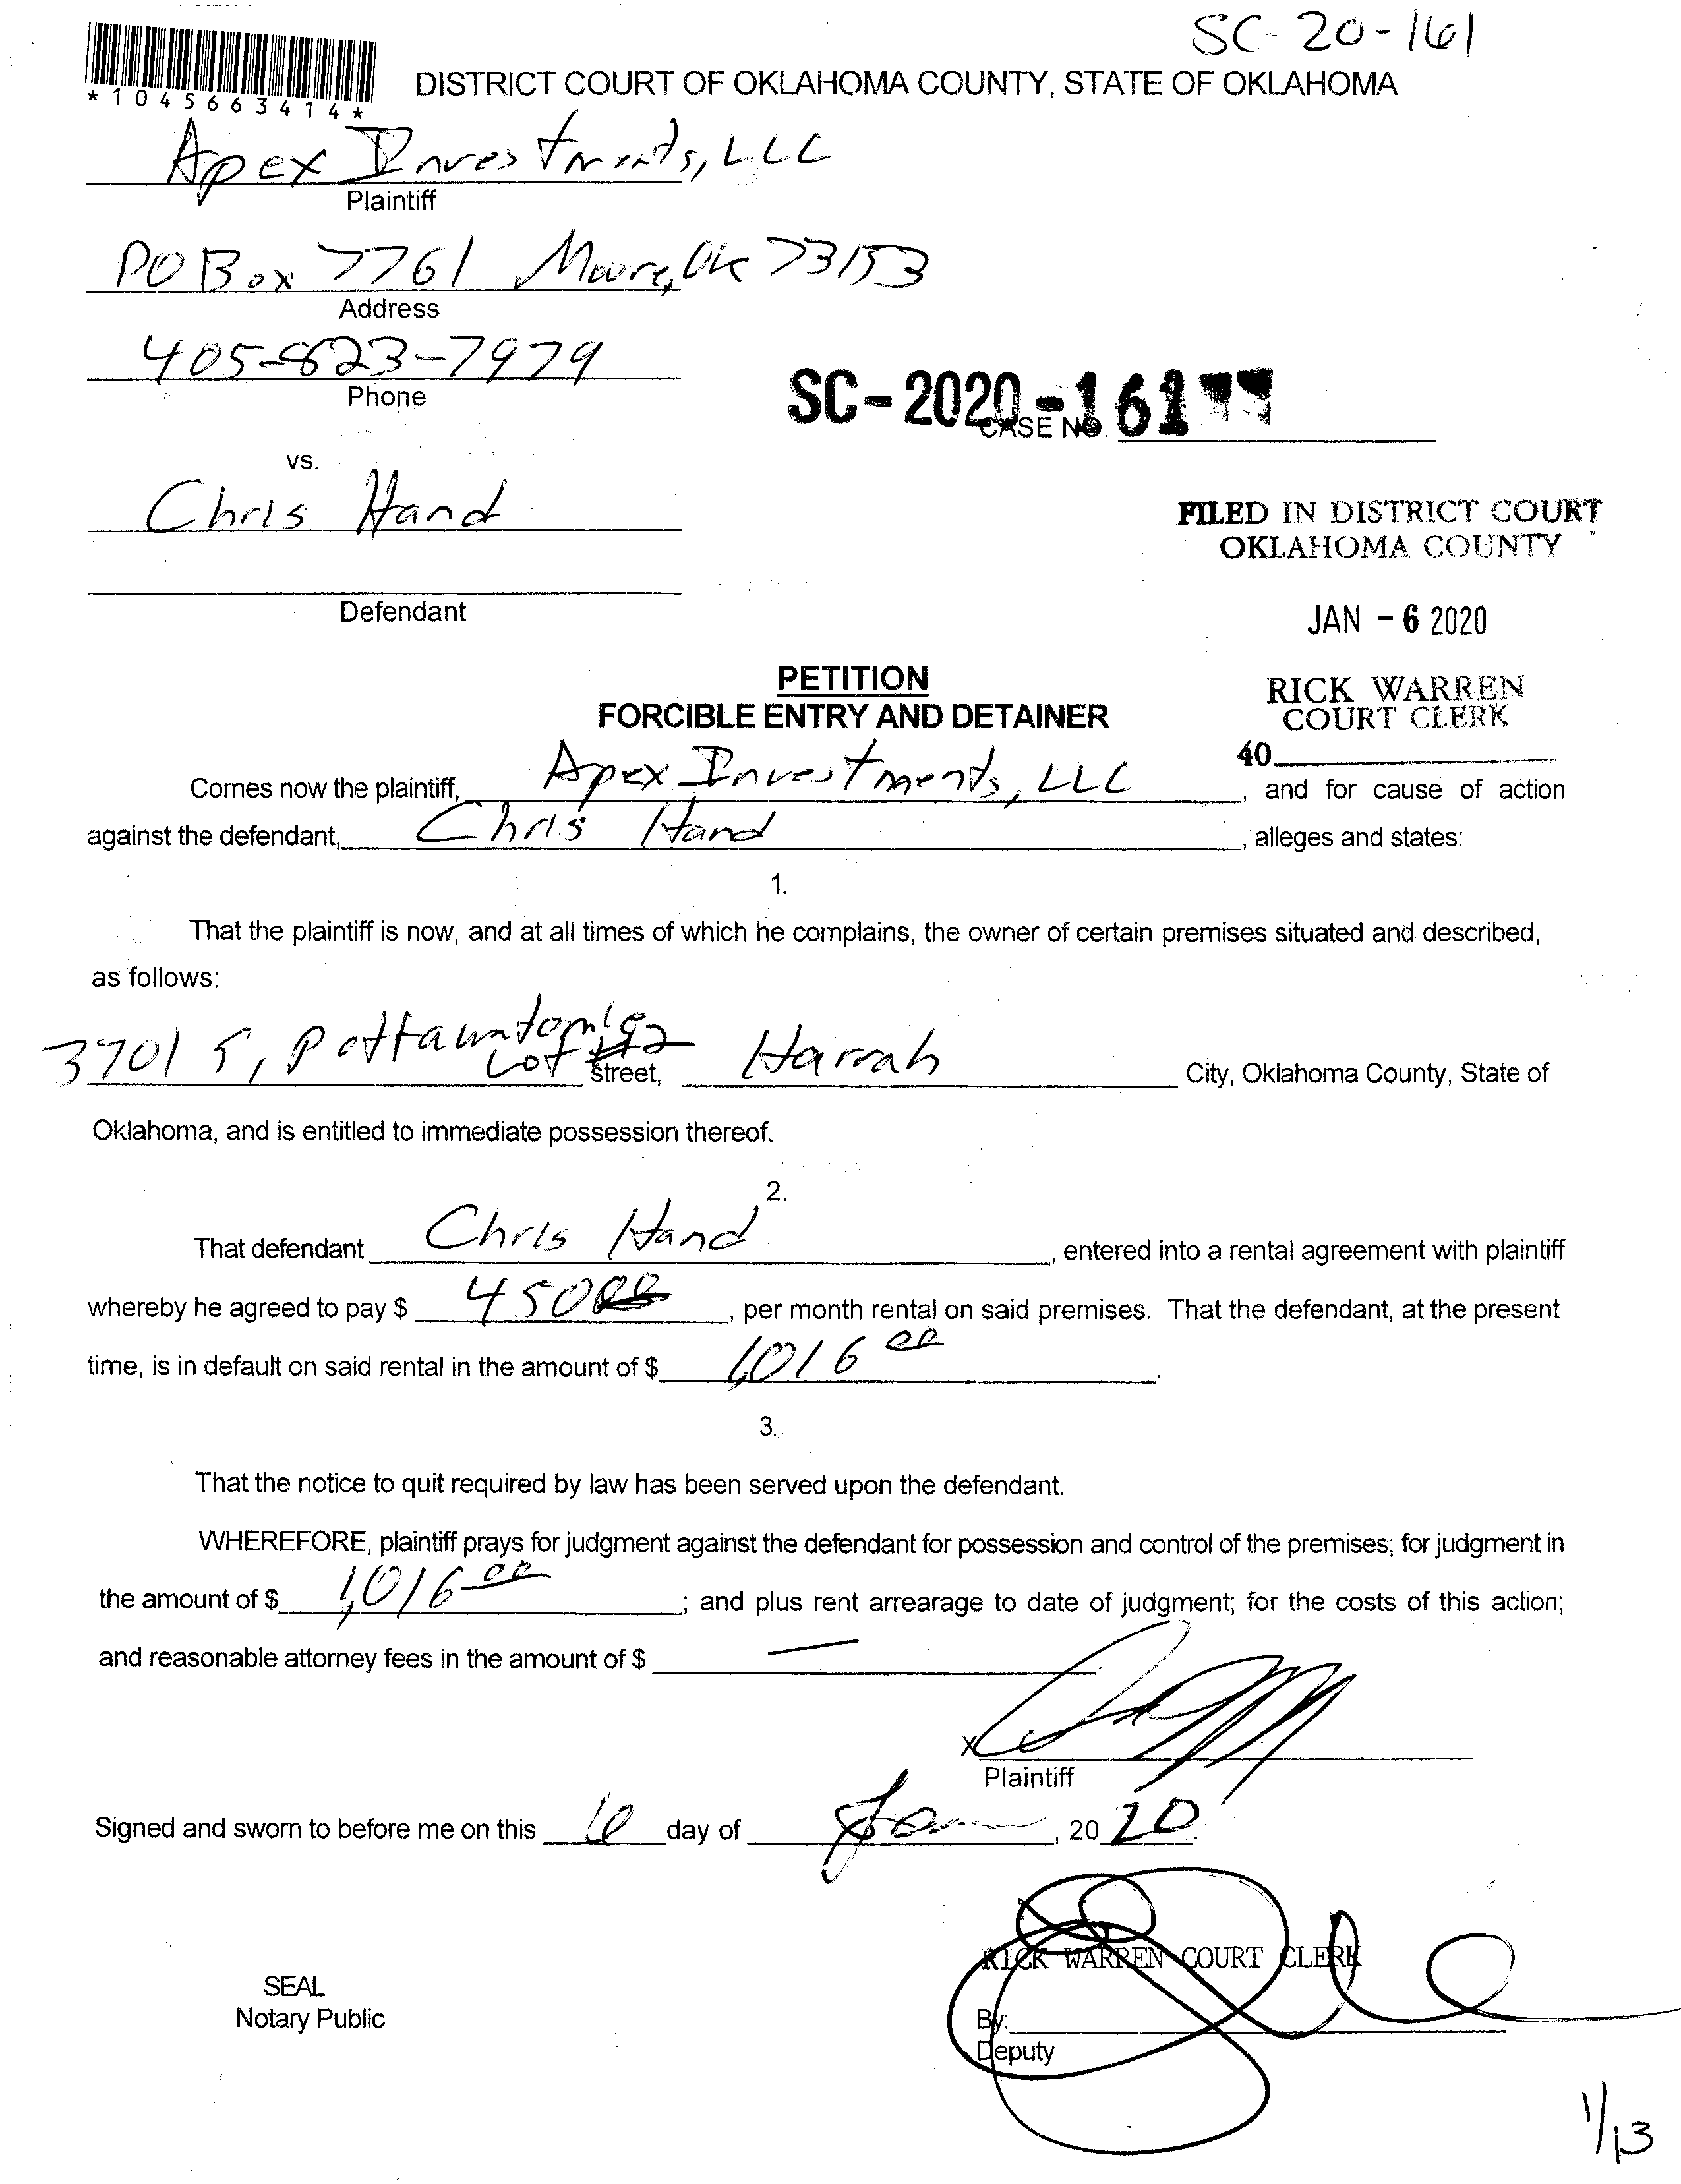 SC-20-161
*1045663414*
DISTRICT COURT OF OKLAHOMA COUNTY, STATE OF OKLAHOMA
Apex Investments, LLC
Plaintiff
PO Box 7761 Moore, Ok 73153
Address
405-823-7979
Phone
SC-2020-161
CASE NO.
vs.
Chris Hand
FILED IN DISTRICT COURT
OKLAHOMA COUNTY
Defendant
JAN - 6 2020
PETITION
FORCIBLE ENTRY AND DETAINER
RICK WARREN
COURT CLERK
40
Comes now the plaintiff, Apex Investments, LLC, and for cause of action
against the defendant, Chris Hand, alleges and states:
1.
That the plaintiff is now, and at all times of which he complains, the owner of certain premises situated and described,
as follows:
3701 S, Pottawatomie
Lot Street, Harrah City, Oklahoma County, State of
Oklahoma, and is entitled to immediate possession thereof.
2.
That defendant Chris Hand, entered into a rental agreement with plaintiff
whereby he agreed to pay $ 450, per month rental on said premises. That the defendant, at the present
time, is in default on said rental in the amount of $ 1,016 00.
3.
That the notice to quit required by law has been served upon the defendant.
WHEREFORE, plaintiff prays for judgment against the defendant for possession and control of the premises; for judgment in
the amount of $ 1,016 00; and plus rent arrearage to date of judgment; for the costs of this action;
and reasonable attorney fees in the amount of $ —
X
Plaintiff
Signed and sworn to before me on this 6 day of Jan, 20 20.
RICK WARREN COURT CLERK
SEAL
Notary Public
By:
Deputy
1/13